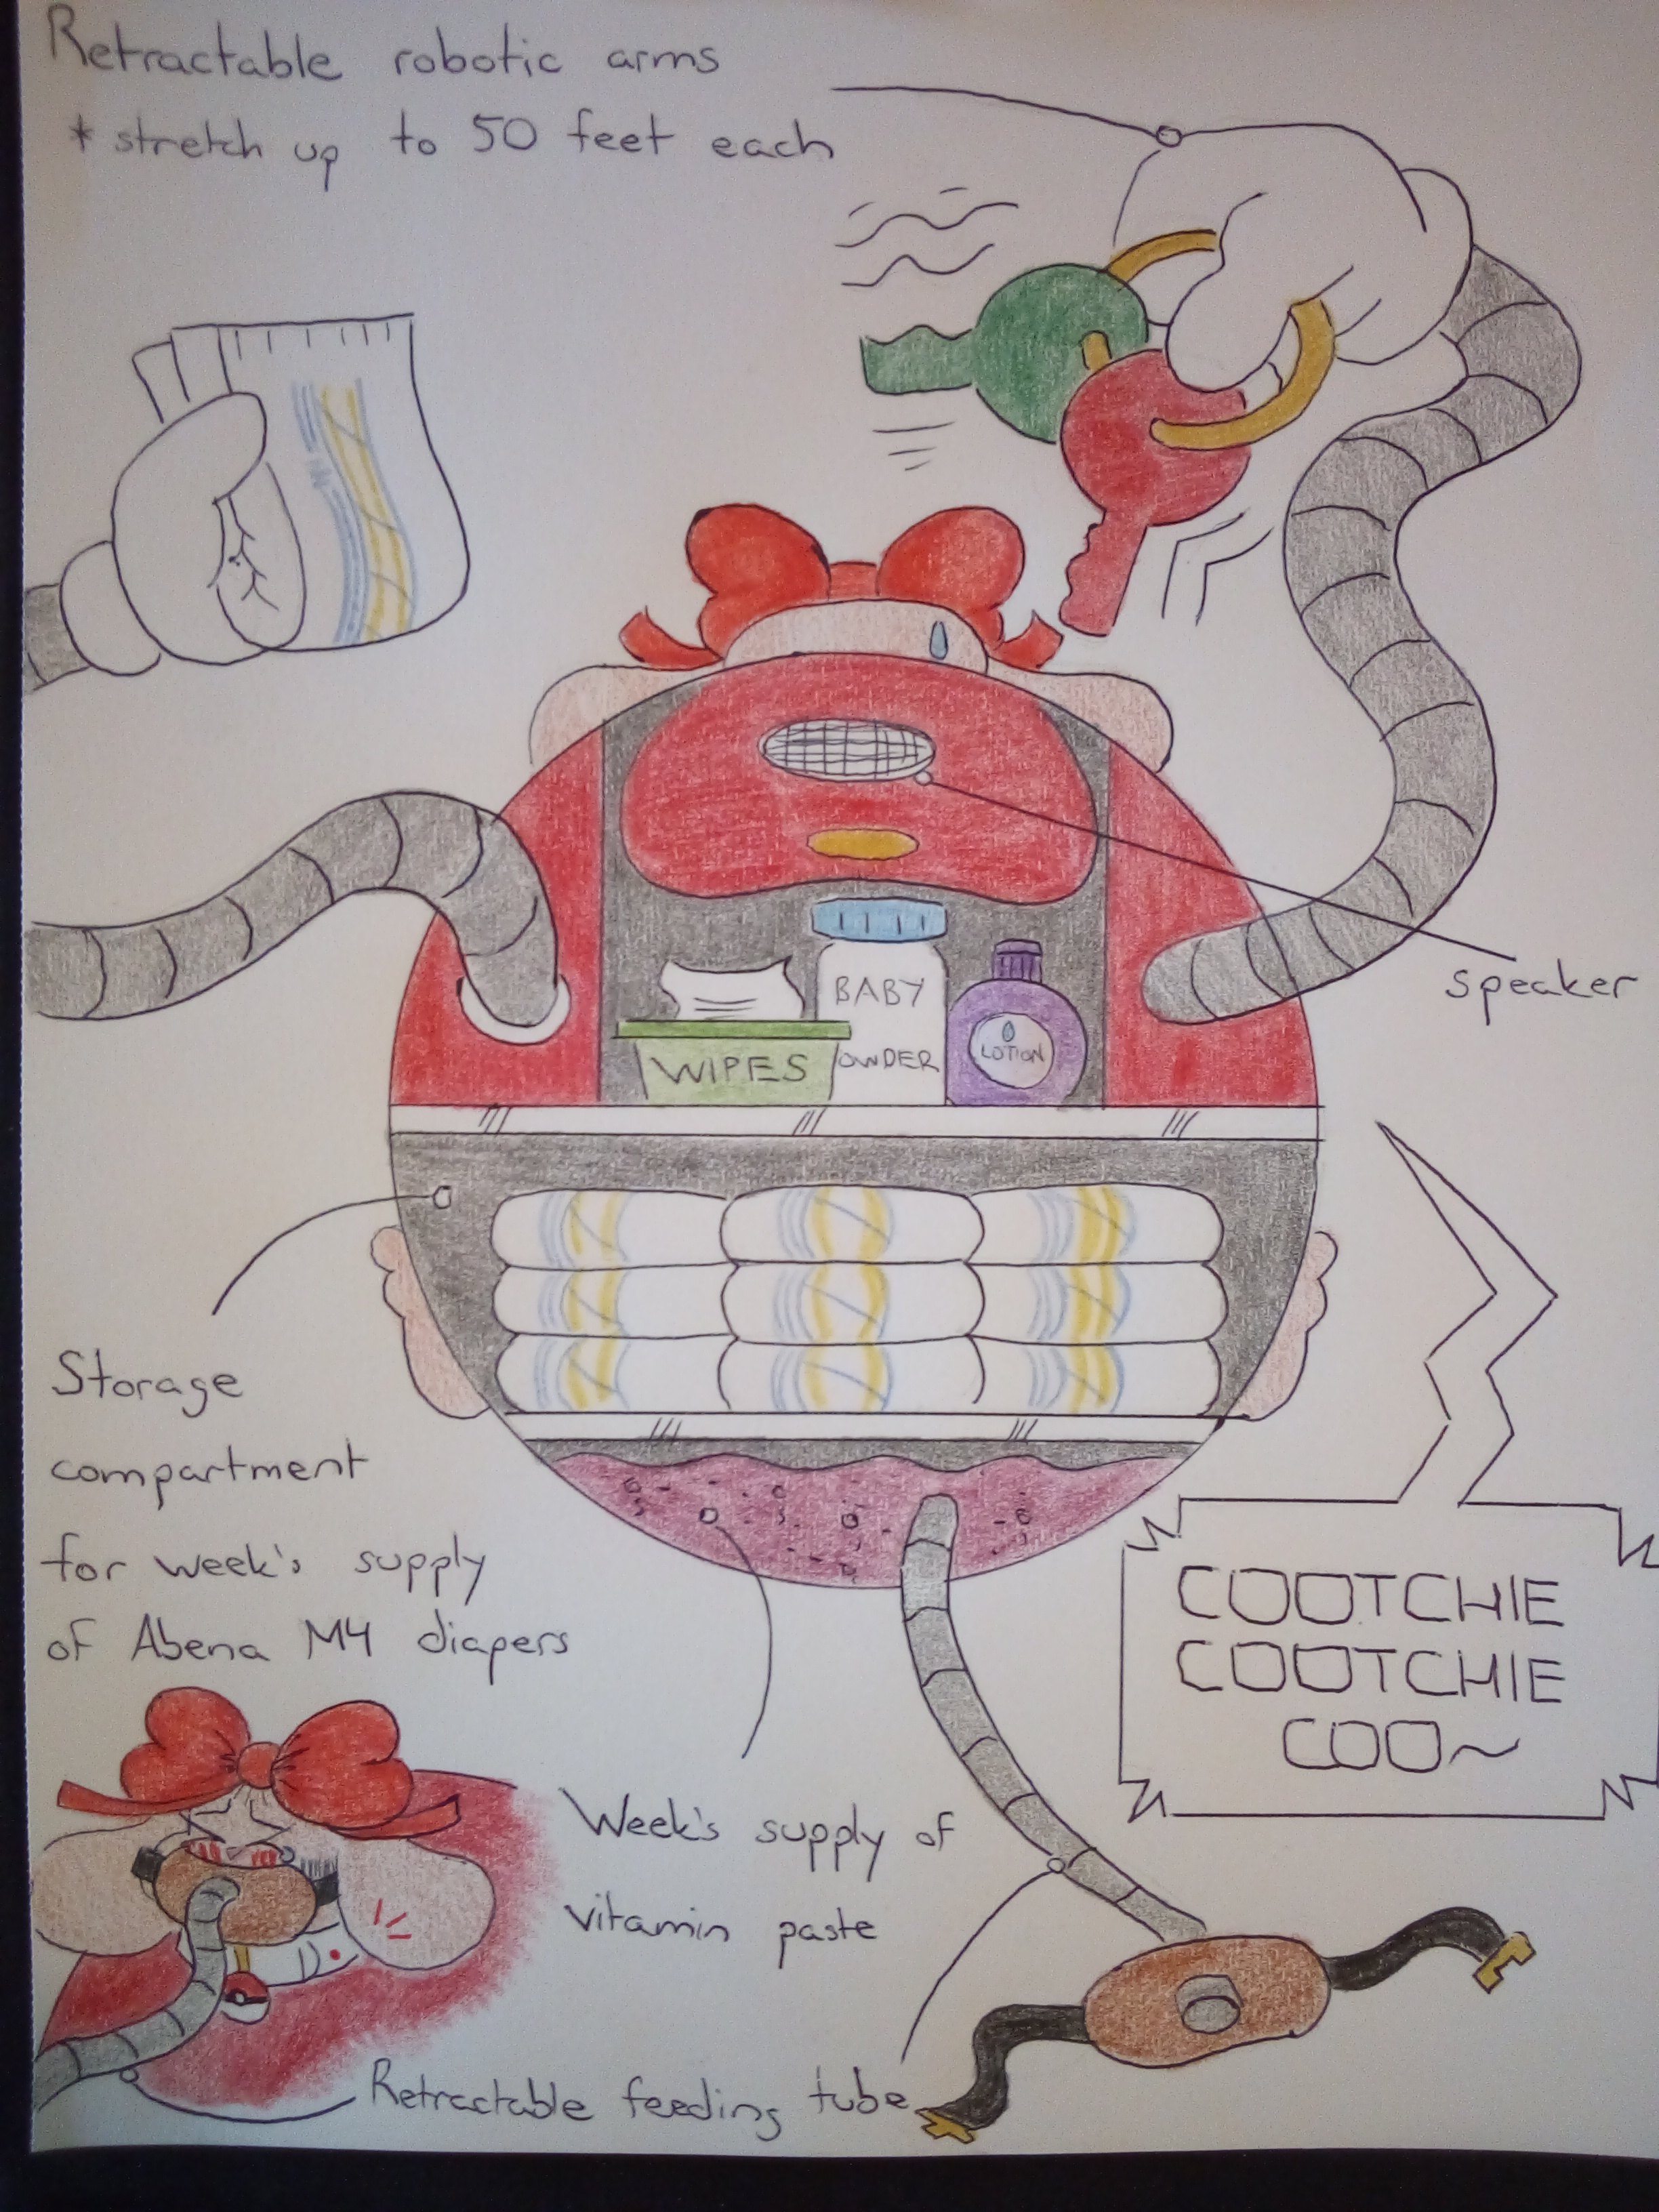 Retractable robotic arms
* stretch up to 50 feet each
BABY
OWDER
WIPES
LOTION
speaker
Storage
compartment
for week's supply
of Abena M4 diapers
COOTCHIE
COOTCHIE
COO~
Week's supply of
vitamin paste
Retractable feeding tube